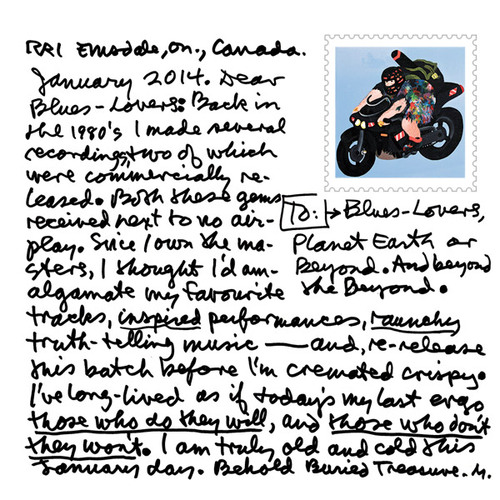 RR1 Emsdale, on., Canada.
January 2014. Dear
Blues-Lovers: Back in
the 1980's I made several
recordings, two of which
were commercially re-
leased. Both these gems
received next to no air-
play. Since I own the ma-
sters, I thought I'd am-
algamate my favourite
tracks, inspired performances, raunchy
truth-telling music — and, re-release
this batch before I'm cremated crispy.
I've long-lived as if today's my last ergo
those who do they will, and those who don't
they won't. I am truly old and cold this
January day. Behold Buried Treasure. M.
To: → Blues-Lovers,
Planet Earth or
Beyond. And beyond
the Beyond.